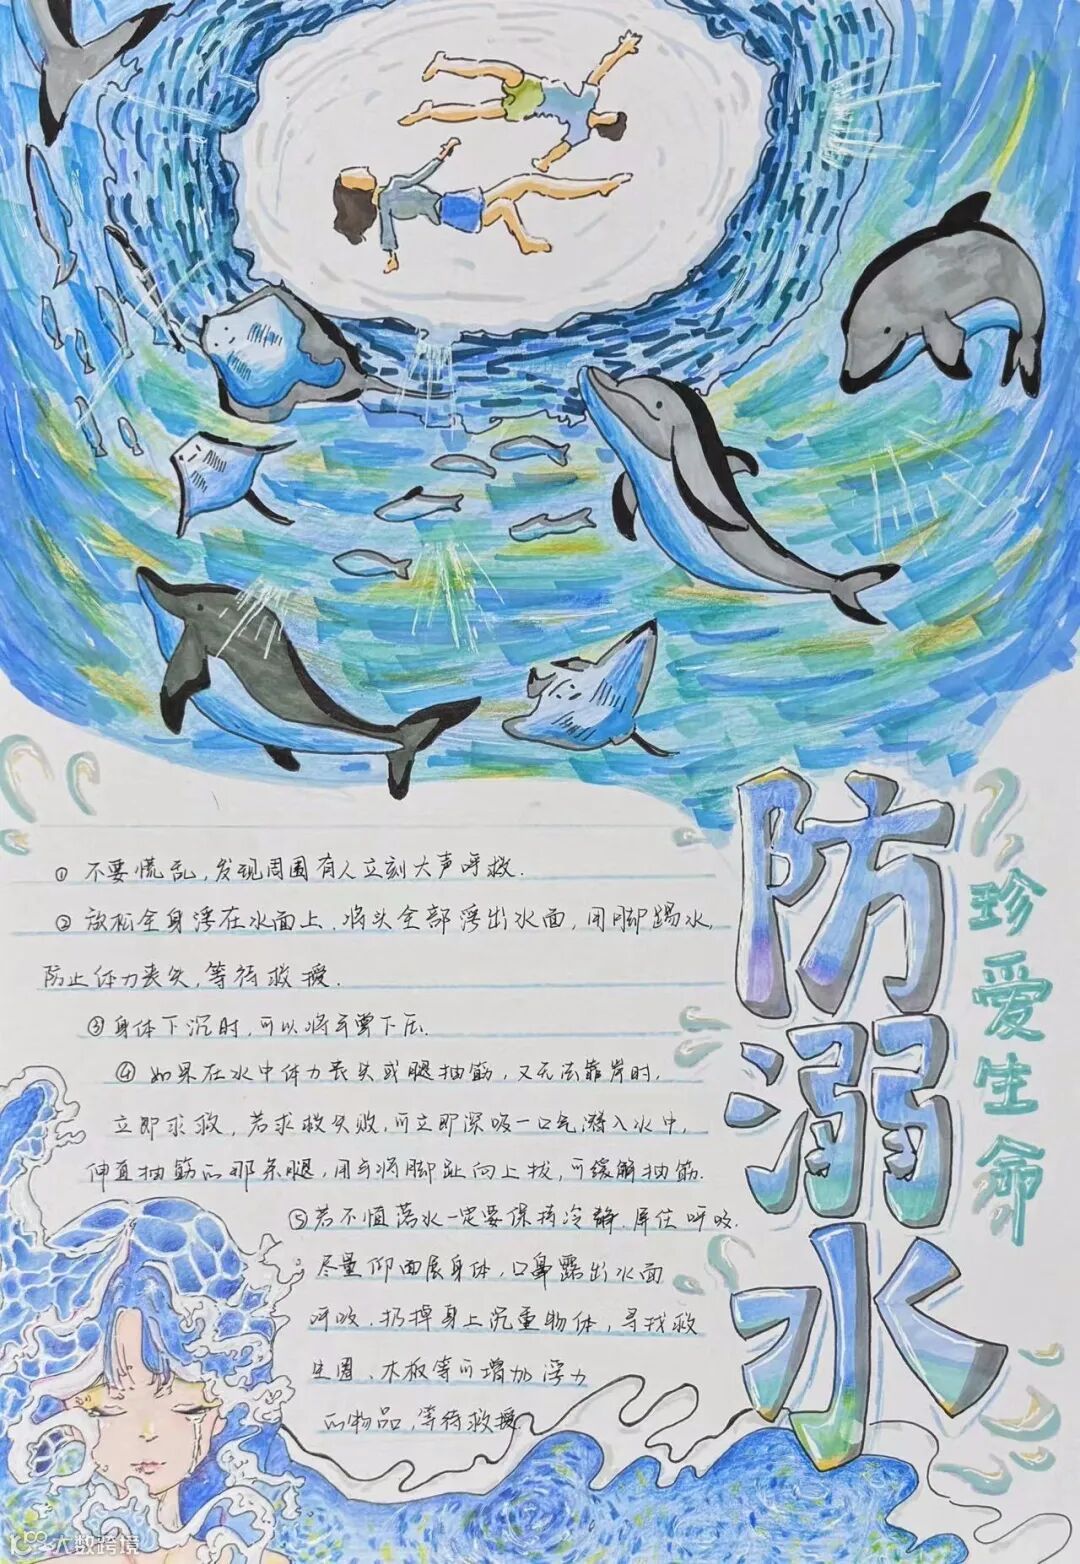 防溺水
珍爱生命
① 不要慌乱,发现周围有人立刻大声呼救.
② 放松全身浮在水面上,将头全部浮出水面,用脚踢水,
防止体力丧失,等待救援.
③ 身体下沉时,可以将手掌下压.
④ 如果在水中体力丧失或腿抽筋,又无法靠岸时,
立即求救,若求救失败,可立即深吸一口气潜入水中,
伸直抽筋的那条腿,用手将脚趾向上拔,可缓解抽筋.
⑤ 若不慎落水一定要保持冷静.屏住呼吸.
尽量仰面展身体,口鼻露出水面
呼吸.扔掉身上沉重物体,寻找救
生圈、木板等可增加浮力
的物品,等待救援.
大数跨境